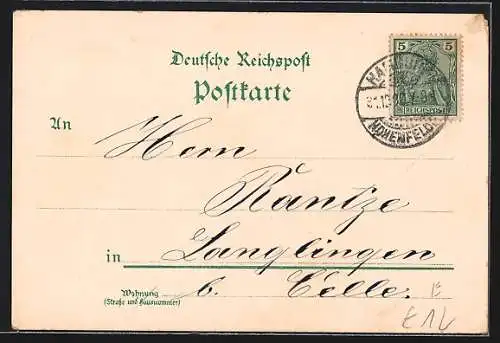 Deutsche Reichspost
Postkarte
5 5
REICHSPOST
HOHENFELDE
An
Herrn
Rantze
in Langlingen
Wohnung b. Celle.
(Straße und Hausnummer)
E 14